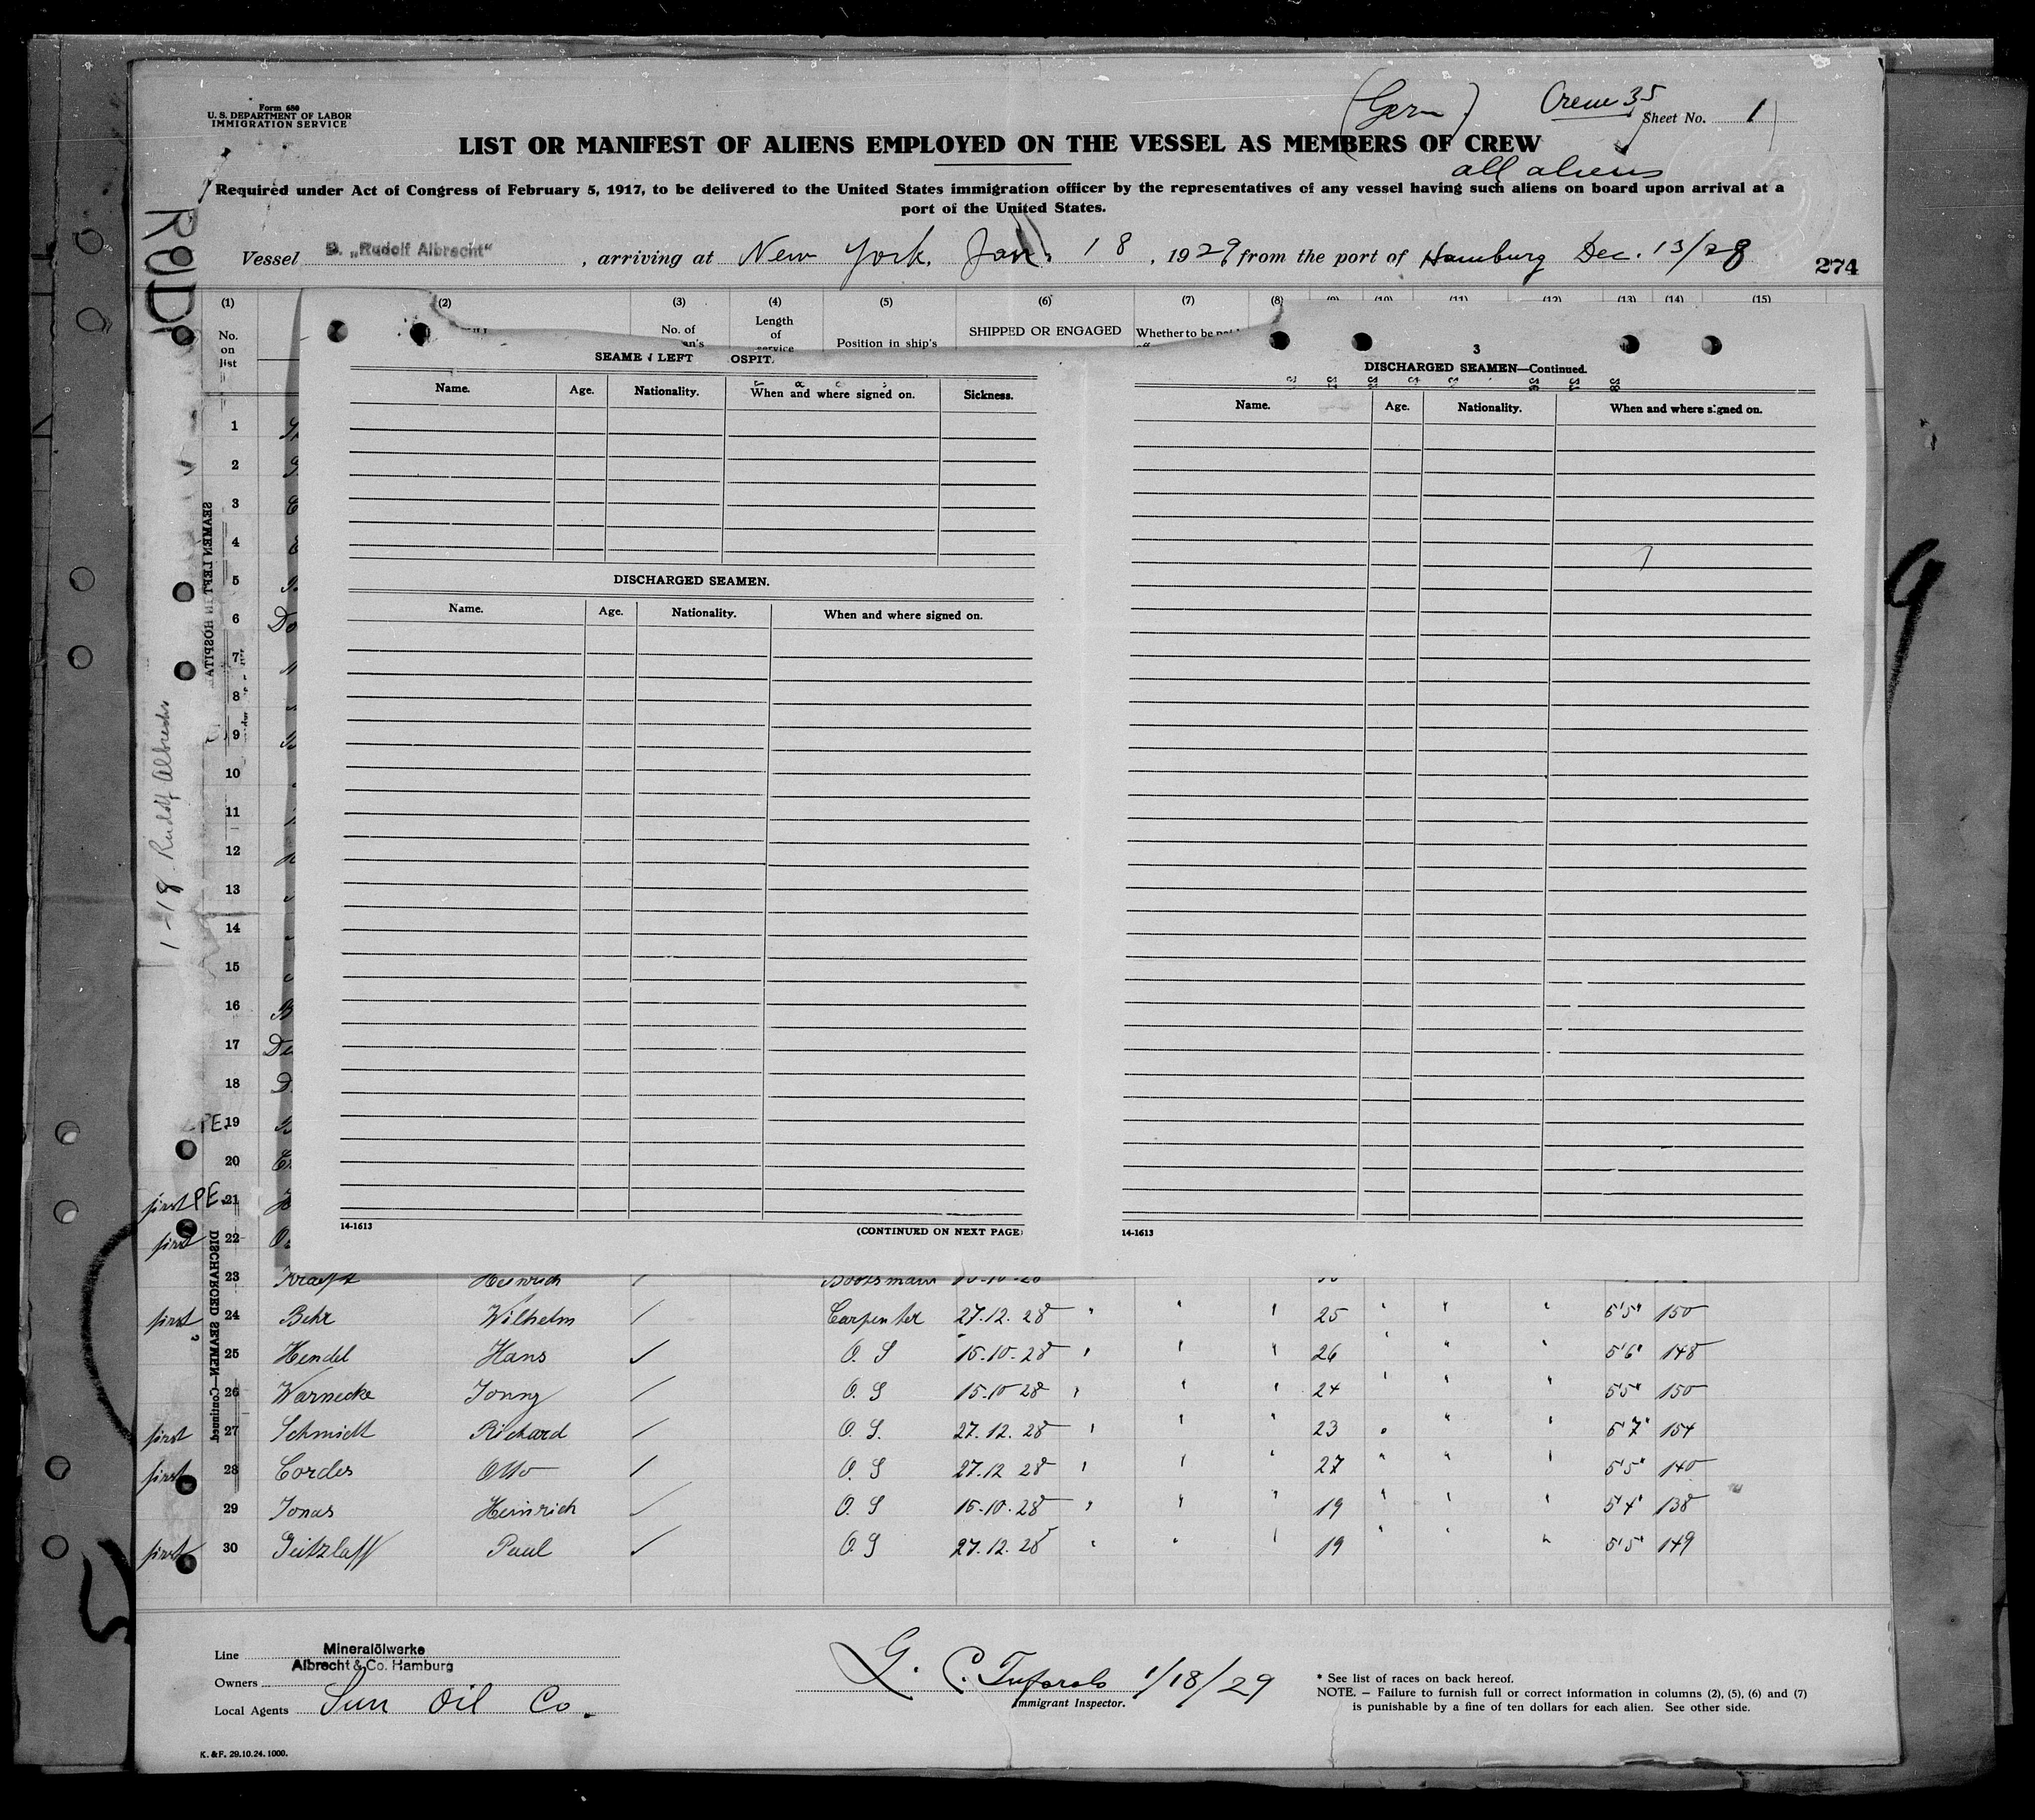 Form 680
U. S. DEPARTMENT OF LABOR
IMMIGRATION SERVICE
(Germ)
Crew 35
Sheet No. 1
LIST OR MANIFEST OF ALIENS EMPLOYED ON THE VESSEL AS MEMBERS OF CREW
all aliens
Required under Act of Congress of February 5, 1917, to be delivered to the United States immigration officer by the representatives of any vessel having such aliens on board upon arrival at a
port of the United States.
Vessel D. „Rudolf Albrecht“ , arriving at New York, Jan. 18 , 1929 from the port of Hamburg Dec. 13/28
274
(1) (2) (3) (4) (5) (6) (7) (8) (9) (10) (11) (12) (13) (14) (15)
No. on list
No. of
Length of service
Position in ship's
SHIPPED OR ENGAGED
Whether to be
SEAMEN LEFT OSPIT.
Name. Age. Nationality. When and where signed on. Sickness.
DISCHARGED SEAMEN.
Name. Age. Nationality. When and where signed on.
14-1613
(CONTINUED ON NEXT PAGE)
3
DISCHARGED SEAMEN—Continued.
Name. Age. Nationality. When and where signed on.
14-1613
1-18 Rudolf Albrecht
SEAMEN LEFT IN HOSPITA
DISCHARGED SEAMEN—Continued
1
2
3
4
5
6 Do
7
8
9
10
11
12
13
14
15
16 B
17 De
18 D
PE 19
20
first PE 21
first 22
23 Kraeft Heinrich Bootsmann
first 24 Behr Wilhelm Carpenter 27.12.28 " " " 25 " " " 5'5" 150
25 Hendel Hans ✓ O. S 15-10-28 " " " 26 " " " 5'6" 148
26 Warnecke Jonny O. S 15-10 28 " " " 24 " " " 5'5" 150
first 27 Schmidt Richard O. S. 27.12.28 " " " 23 " " " 5'7" 154
first 28 Cordes Otto O. S 27.12 28 " " " 27 " " " 5'5" 140
29 Jonas Heinrich O. S 15-10-28 " " " 19 " " " 5'4" 138
first 30 Geitzlaff Paul ✓ O S 27.12.28 " " " 19 " " " 5'5" 149
Line Mineralölwerke
Albrecht & Co. Hamburg
Owners
Local Agents Sun Oil Co.
G. C. 1/18/29
Immigrant Inspector.
* See list of races on back hereof.
NOTE. – Failure to furnish full or correct information in columns (2), (5), (6) and (7)
is punishable by a fine of ten dollars for each alien. See other side.
K. & F. 29.10.24. 1000.